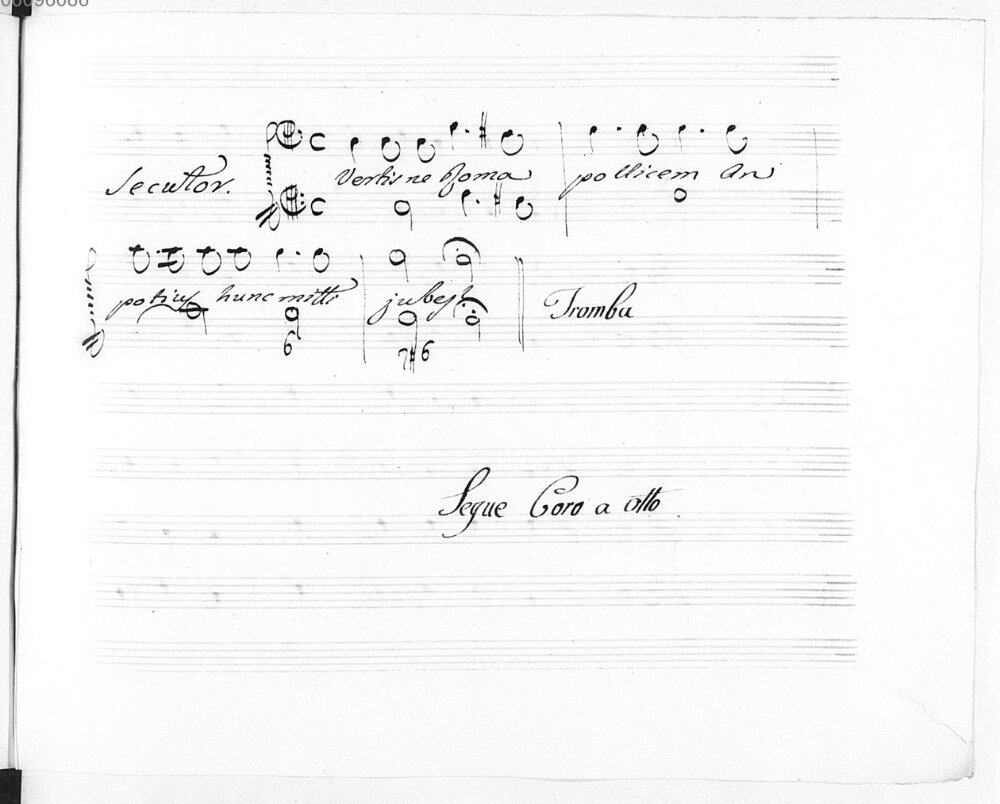 00096086
Secutor.
Vertis ne Roma pollicem An
potius hunc mitti jubes
Tromba
6
7# 6
Segue Coro a otto